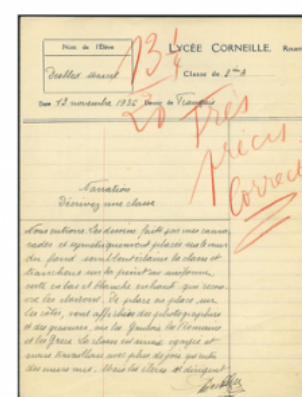 Nom de l'Élève
LYCÉE CORNEILLE. Rouen
13 1/4
20
Classe de
Date 13 novembre 1936 Devoir de Français
Très
précis
Correct
Narration
Décrivez une classe
Nous entrons. Les dessins faits par mes cama
rades et symétriquement placés sur le mur
du fond semblent éclairer la classe et
tranchent sur la peinture uniforme,
verte en bas et blanche en haut, qui recou
vre les cloisons. De place en place, sur
les côtés, sont affichées des photographies
et des gravures, où les Gaulois, les Romains
et les Grecs. La classe est mieux égayée et
nous travaillons avec plus de joie qu'entre
des murs nus. Mais les élèves se dirigent